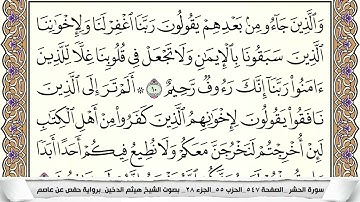 وَٱلَّذِينَ جَآءُو مِنۢ بَعْدِهِمْ يَقُولُونَ رَبَّنَا ٱغْفِرْ لَنَا وَلِإِخْوَٰنِنَا
ٱلَّذِينَ سَبَقُونَا بِٱلْإِيمَٰنِ وَلَا تَجْعَلْ فِى قُلُوبِنَا غِلًّا لِّلَّذِينَ
ءَامَنُوا۟ رَبَّنَآ إِنَّكَ رَءُوفٌ رَّحِيمٌ ١٠ ۞ أَلَمْ تَرَ إِلَى ٱلَّذِينَ
نَافَقُوا۟ يَقُولُونَ لِإِخْوَٰنِهِمُ ٱلَّذِينَ كَفَرُوا۟ مِنْ أَهْلِ ٱلْكِتَٰبِ
لَئِنْ أُخْرِجْتُمْ لَنَخْرُجَنَّ مَعَكُمْ وَلَا نُطِيعُ فِيكُمْ أَحَدًا أَبَدًا
سورة الحشر_الصفحة ٥٤٧_الحزب ٥٥_الجزء ٢٨_ بصوت الشيخ هيثم الدخين_برواية حفص عن عاصم